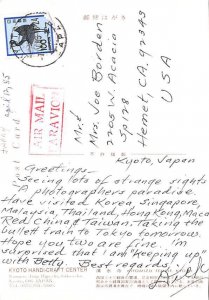 郵便はがき
AIR MAIL
PAR AVION
Card
Mr &
Mrs. Joe Borden
2205 W. Acacia
Sp 178
Hemet, CA. 92343
USA
Kyoto, Japan
Greetings—
Seeing lots of strange sights
A photographers paradise.
Have visited Korea, Singapore,
Malaysia, Thailand, HongKong, Macao
Red China & Taiwan. Taking the
bullett train to Tokyo tomorrow.
Hope you two are fine. I'm
surprised that I am "Keeping up"
with Betty. Best regards,
KYOTO HANDICRAFT CENTER
Kyoto, JAPAN